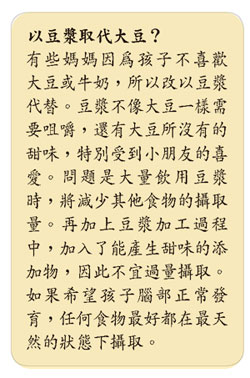 以豆漿取代大豆？
有些媽媽因為孩子不喜歡
大豆或牛奶，所以改以豆漿
代替。豆漿不像大豆一樣需
要咀嚼，還有大豆所沒有的
甜味，特別受到小朋友的喜
愛。問題是大量飲用豆漿
時，將減少其他食物的攝取
量。再加上豆漿加工過程
中，加入了能產生甜味的添
加物，因此不宜過量攝取。
如果希望孩子腦部正常發
育，任何食物最好都在最天
然的狀態下攝取。